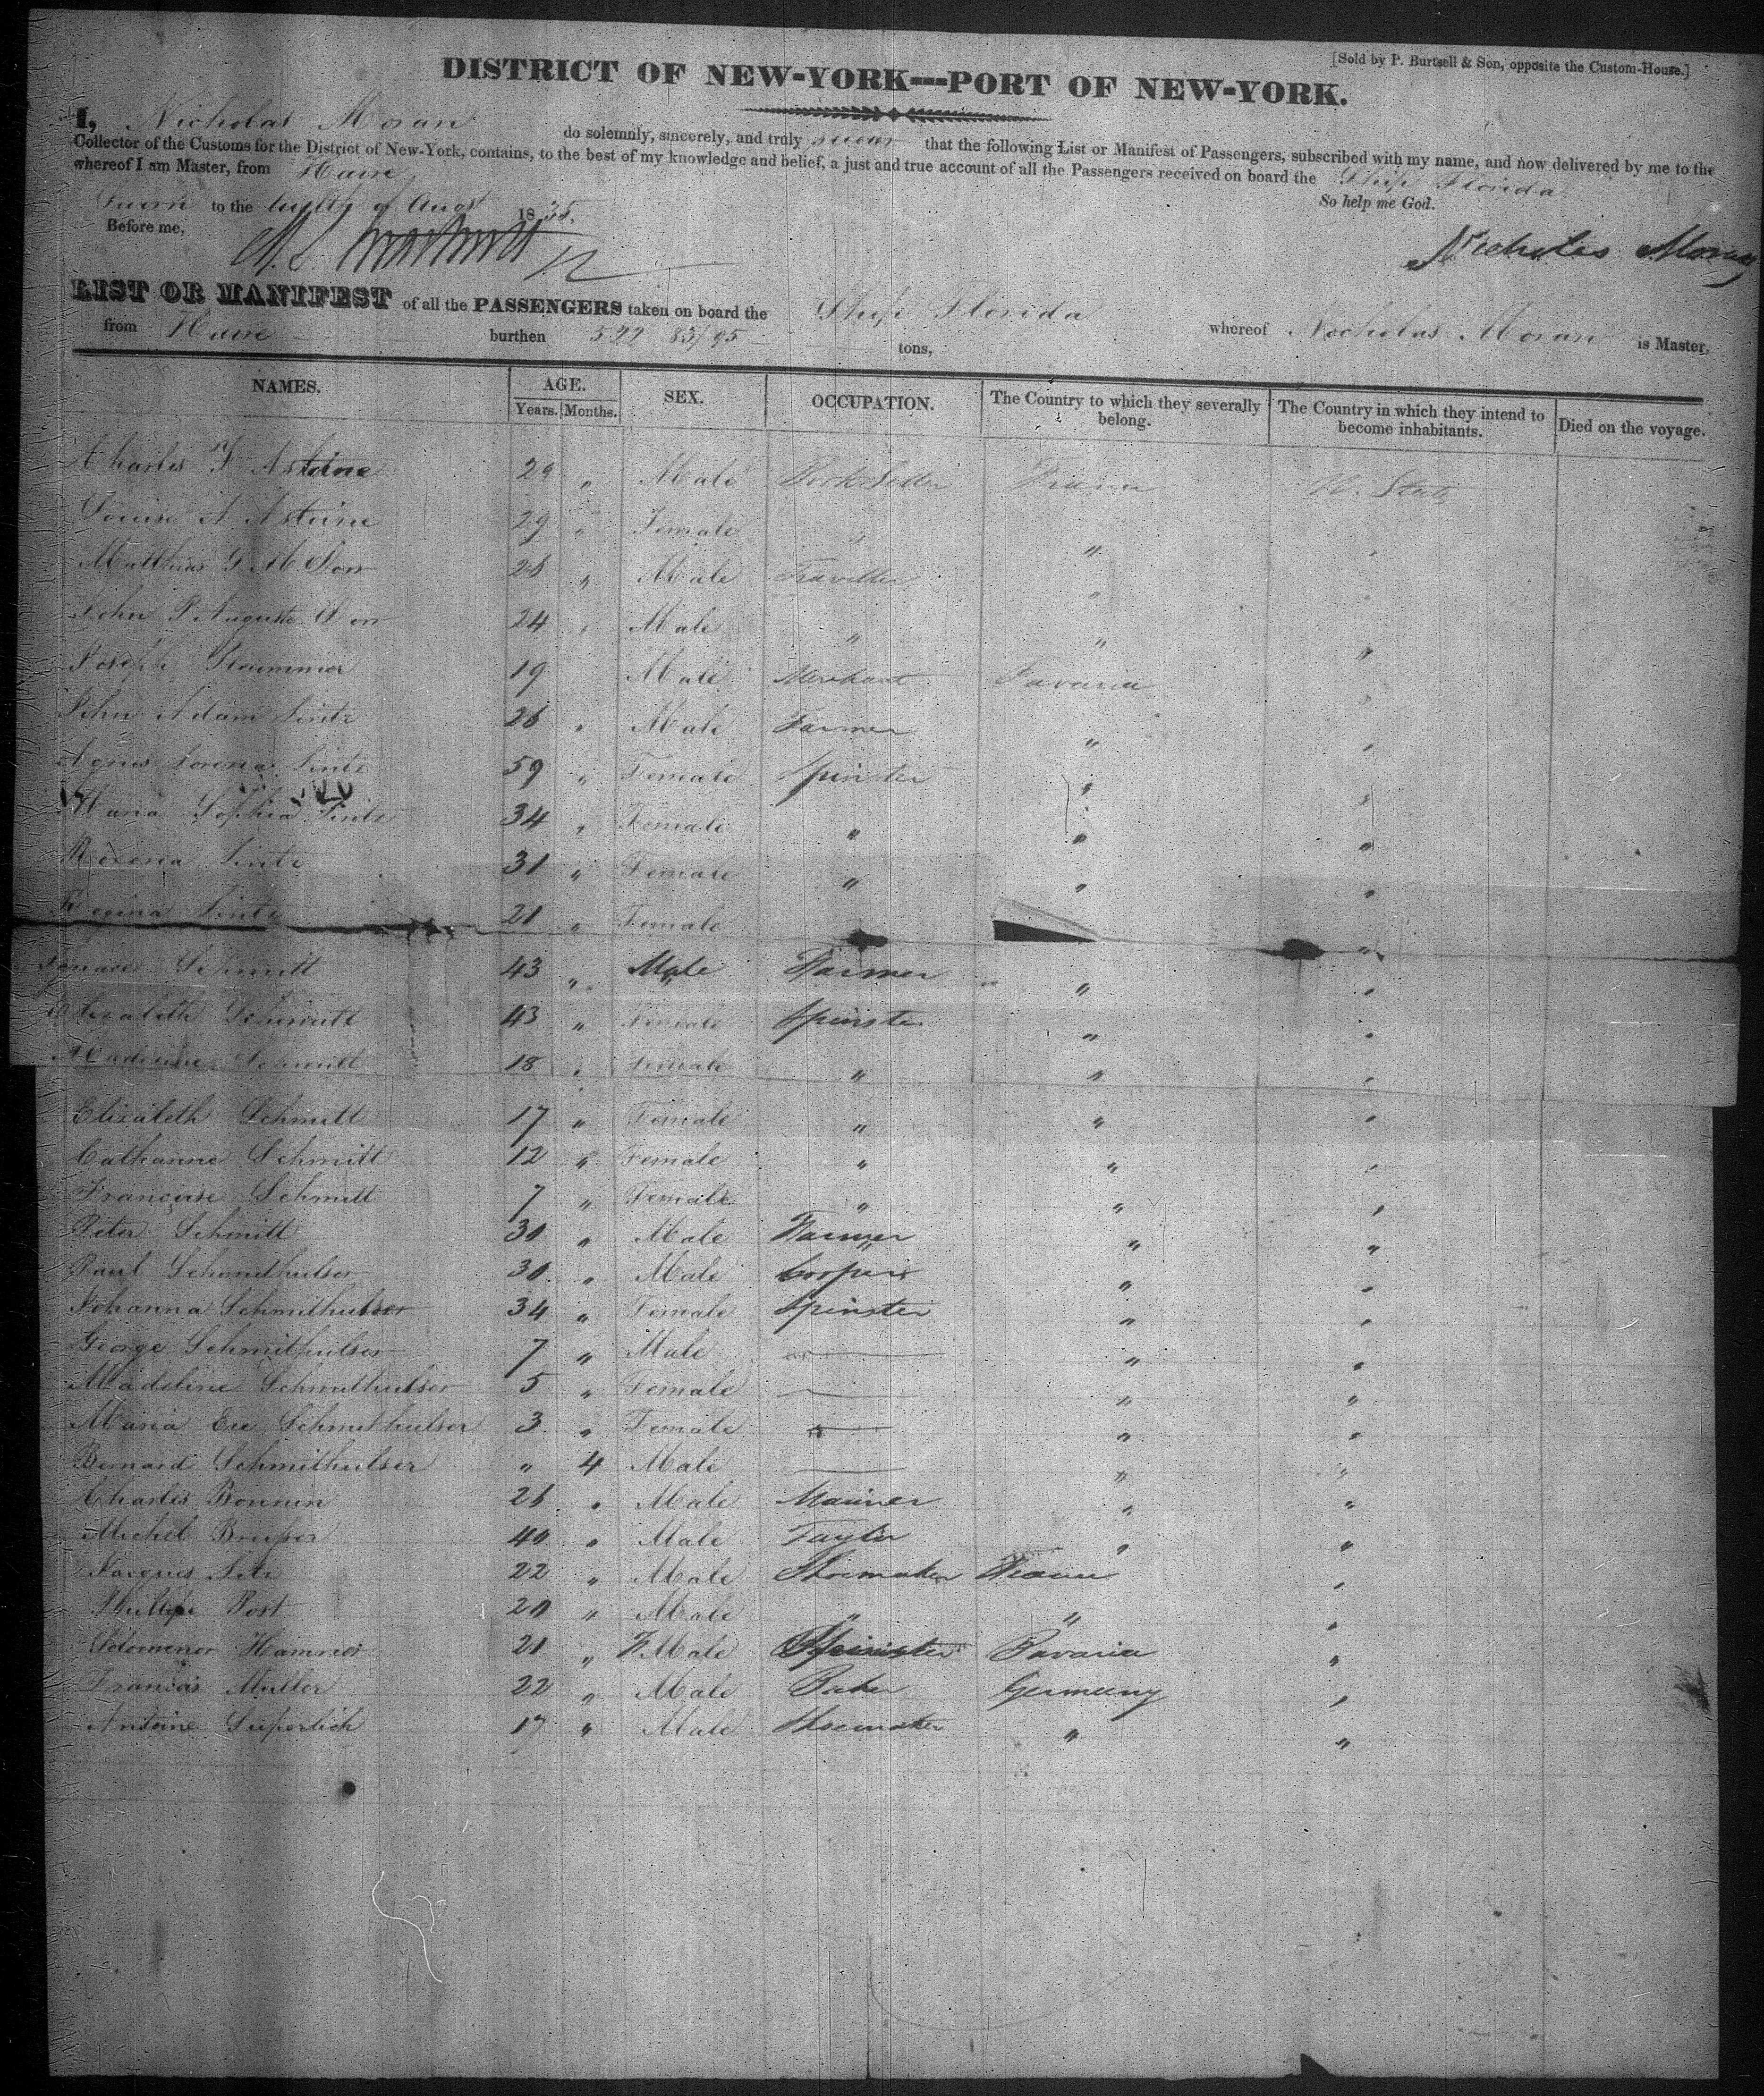 [Sold by P. Burtsell & Son, opposite the Custom-House.]
DISTRICT OF NEW-YORK---PORT OF NEW-YORK.
I, Nicholas Moran do solemnly, sincerely, and truly swear that the following List or Manifest of Passengers, subscribed with my name, and now delivered by me to the
Collector of the Customs for the District of New-York, contains, to the best of my knowledge and belief, a just and true account of all the Passengers received on board the Ship Florida
whereof I am Master, from Havre
So help me God.
Sworn to the of 1835.
Before me,
Nicholas Moran
LIST OR MANIFEST of all the PASSENGERS taken on board the Ship Florida whereof Nocholas Moran is Master,
from Havre burthen 522 83/95 tons,
NAMES. AGE. SEX. OCCUPATION. The Country to which they severally belong. The Country in which they intend to become inhabitants. Died on the voyage.
Years. Months.
Charles F 29 " Male France U. States
Louise A 29 " Female " " "
Matthias G M 26 " Male Traveller " "
John P Auguste 24 " Male " " "
Joseph 19 Male Merchant Bavaria "
John Adam Lintz 26 " Male Farmer " "
Agnes Lorena Lintz 59 " Female Spinster " "
Maria Sophia Lintz 34 " Female " " "
Lintz 31 " Female " " "
Regina Lintz 21 " Female "
Ignace Schmitt 43 " Male Farmer " "
Elizabeth Schmitt 43 " Female Spinster " "
Madeline Schmitt 18 " Female " " "
Elizabeth Schmitt 17 " Female " " "
Catharine Schmitt 12 " Female " " "
Françoise Schmitt 7 " Female " " "
Peter Schmitt 30 " Male Farmer " "
Paul Schmithulser 30 " Male Cooper " "
Johanna Schmithulser 34 " Female Spinster " "
George Schmithulser 7 " Male — " "
Madeline Schmithulser 5 " Female — " "
Maria Eve Schmithulser 3 " Female — " "
Bernard Schmithulser " 4 Male — " "
Charles Bonnin 26 " Male " "
Michel 40 " Male Taylor " "
Jacques 22 " Male Shoemaker France "
Phillipe Post 20 " Male " " "
21 " FMale Spinster Bavaria "
Francois Muller 22 " Male Baker Germany "
Antoine 17 " Male Shoemaker " "